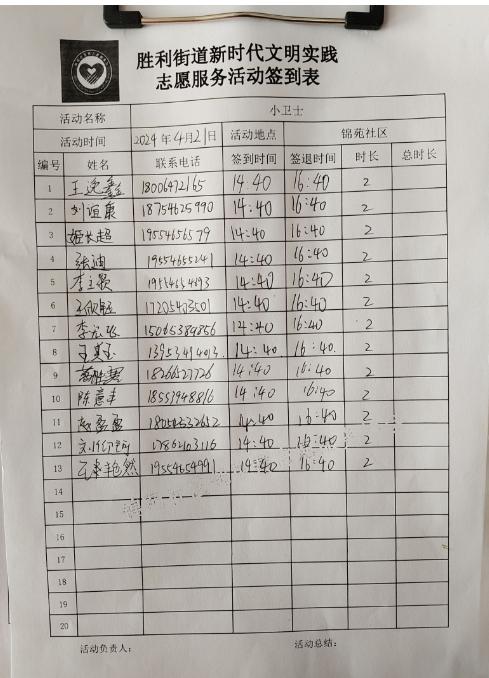 胜利街道新时代文明实践
志愿服务活动签到表
活动名称 小卫士
活动时间 2024年4月21日 活动地点 锦苑社区
编号 姓名 联系电话 签到时间 签退时间 时长 总时长
1 王逸鑫 18006472165 14:40 16:40 2
2 刘谊康 18754625990 14:40 16:40 2
3 姬长超 19554656579 14:40 16:40 2
4 张迪 19554655241 14:40 16:40 2
5 李立颖 14:40 16:40 2
6 17205473501 14:40 16:40 2
7 15065384856 14:40 16:40 2
8 13953494013 14:40 16:40 2
9 18266527726 14:40 16:40 2
10 陈意丰 18557948816 14:40 16:40 2
11 盈盈 18050232652 14:40 16:40 2
12 17862103116 14:40 16:40 2
13 19554654991 14:40 16:40 2
14
15
16
17
18
19
20
活动负责人： 活动总结：